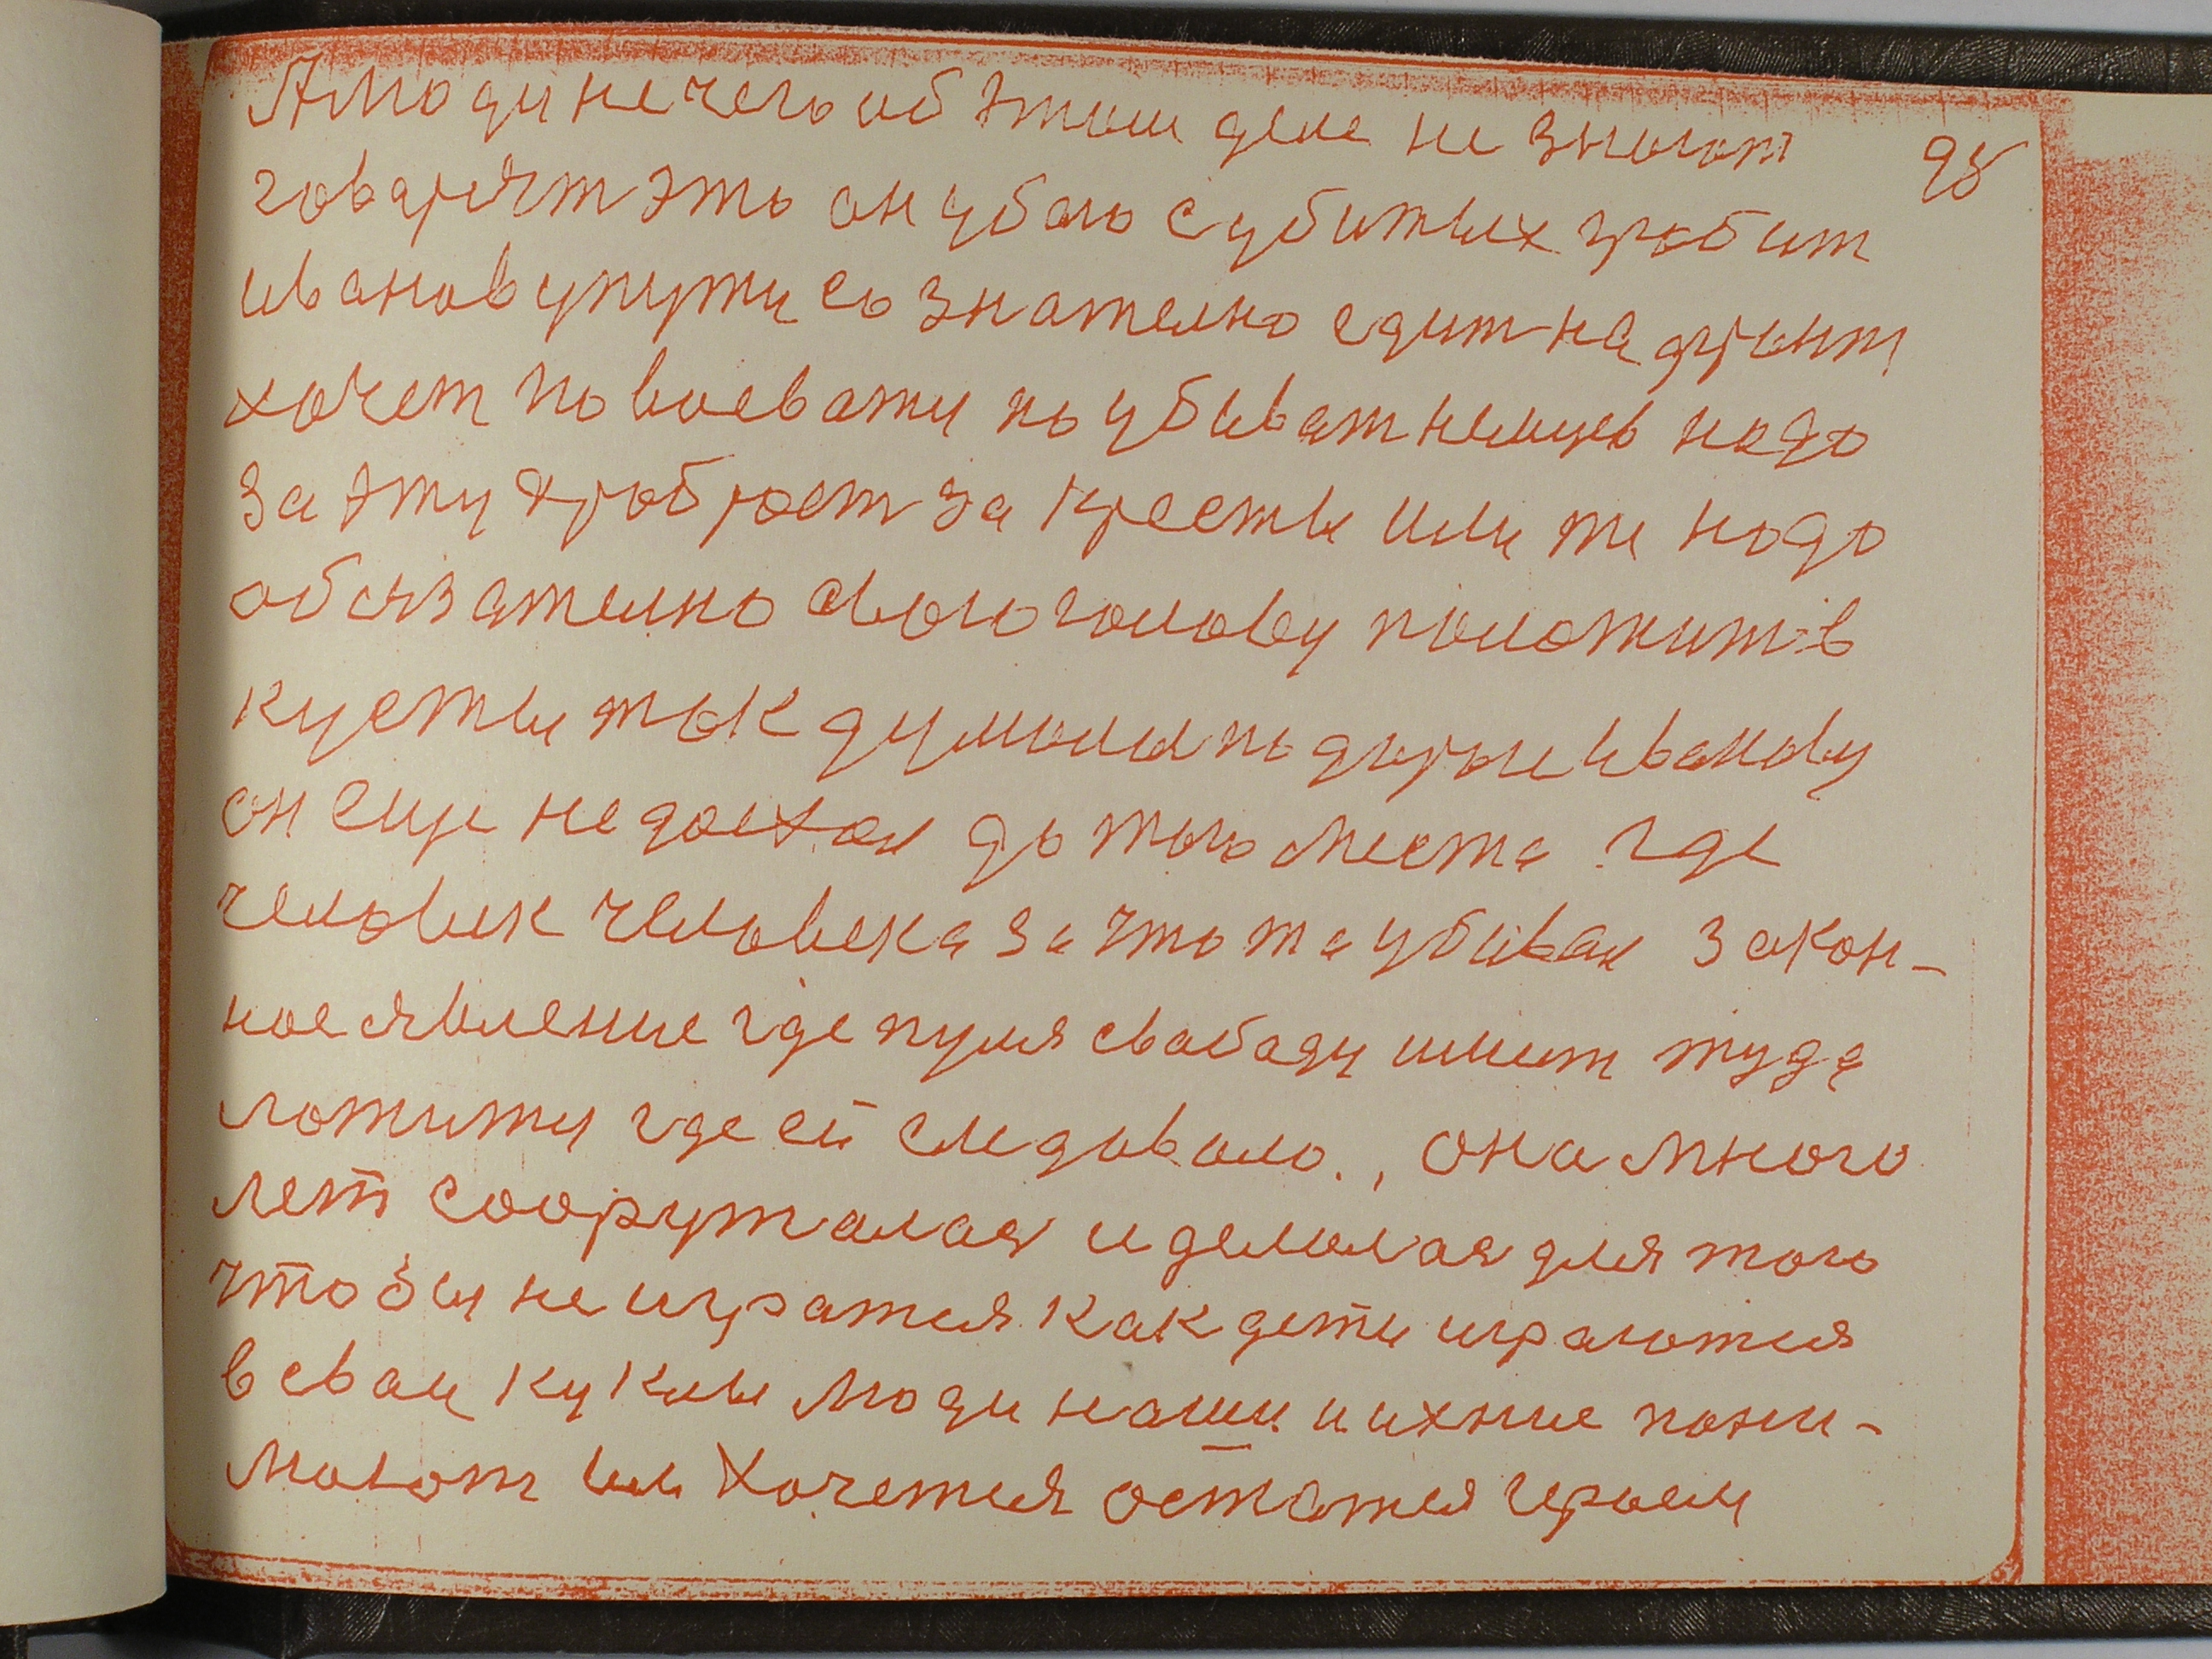 А люди нечего об этом деле не знают 98
говарят это он убого с убитых грабит
иванов упути сознателно едит на фронт
хочет по воевати по убиват немцев надо
за эту храброст за кресты или ти надо
обязателно свою голову положит в
кусты так думали подпрые иванову
он еще не доехал до того места где
человек человека за што та убивал закон-
ное явление где пуля свабаду имит туда
ложити где ей следовало., она много
лет сооружалас и делалас для того
чтобы не игратся как дети играются
в сваи куклы люди наши и ихние пони-
мают им хочется остатся героем